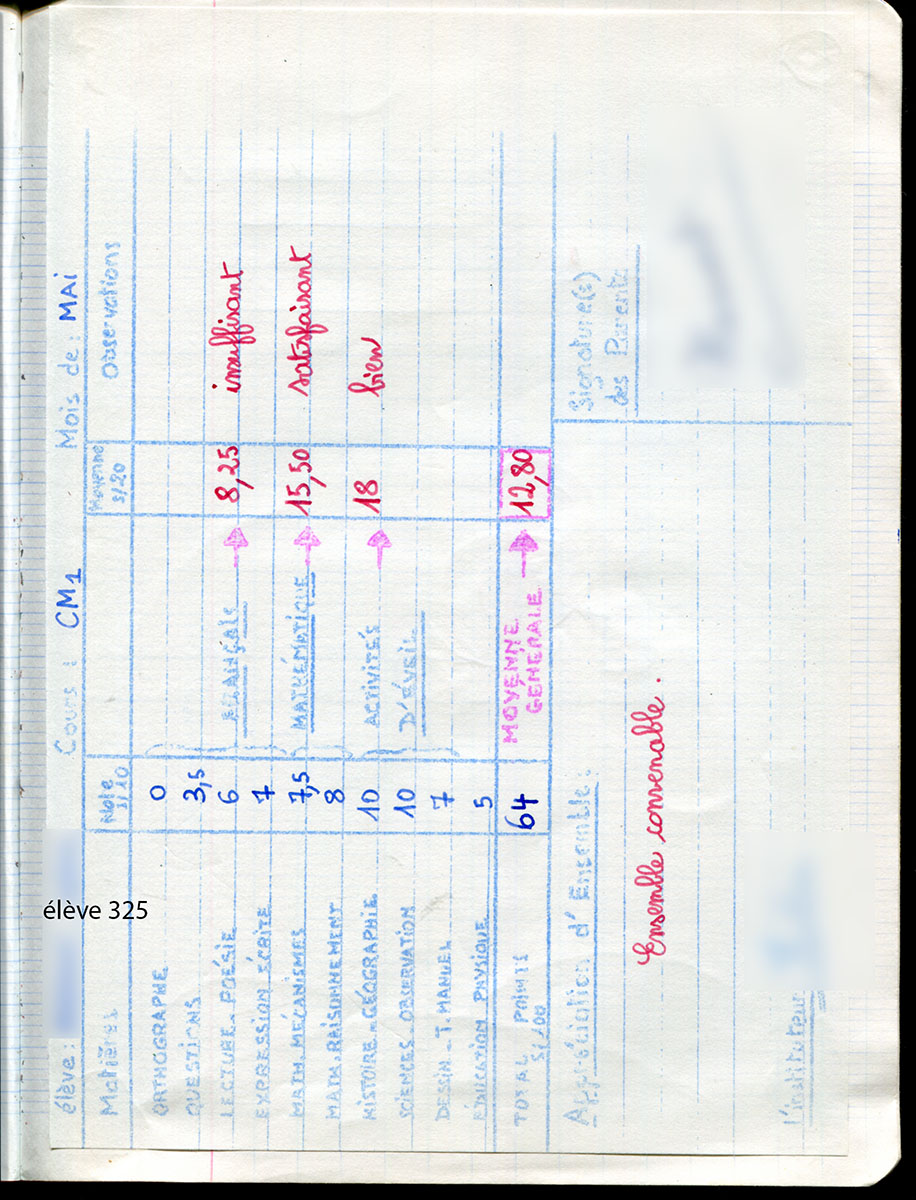 élève : élève 325 Cours : CM1 Mois de : MAI
Matières Note s/10 Moyenne s/20 Observations
ORTHOGRAPHE 0
QUESTIONS 3,5
LECTURE - POÉSIE 6 FRANÇAIS → 8,25 insuffisant
EXPRESSION ÉCRITE 7
MATH. MÉCANISMES 7,5 MATHÉMATIQUE → 15,50 satisfaisant
MATH. RAISONNEMENT 8
HISTOIRE - GÉOGRAPHIE 10 ACTIVITÉS → 18 bien
SCIENCES OBSERVATION 10 D'ÉVEIL
DESSIN - T. MANUEL 7
ÉDUCATION PHYSIQUE 5
TOTAL POINTS s/100 64 MOYENNE GENERALE → 12,80
Appréciation d'Ensemble : Signature(s)
des Parents
Ensemble convenable.
l'instituteur